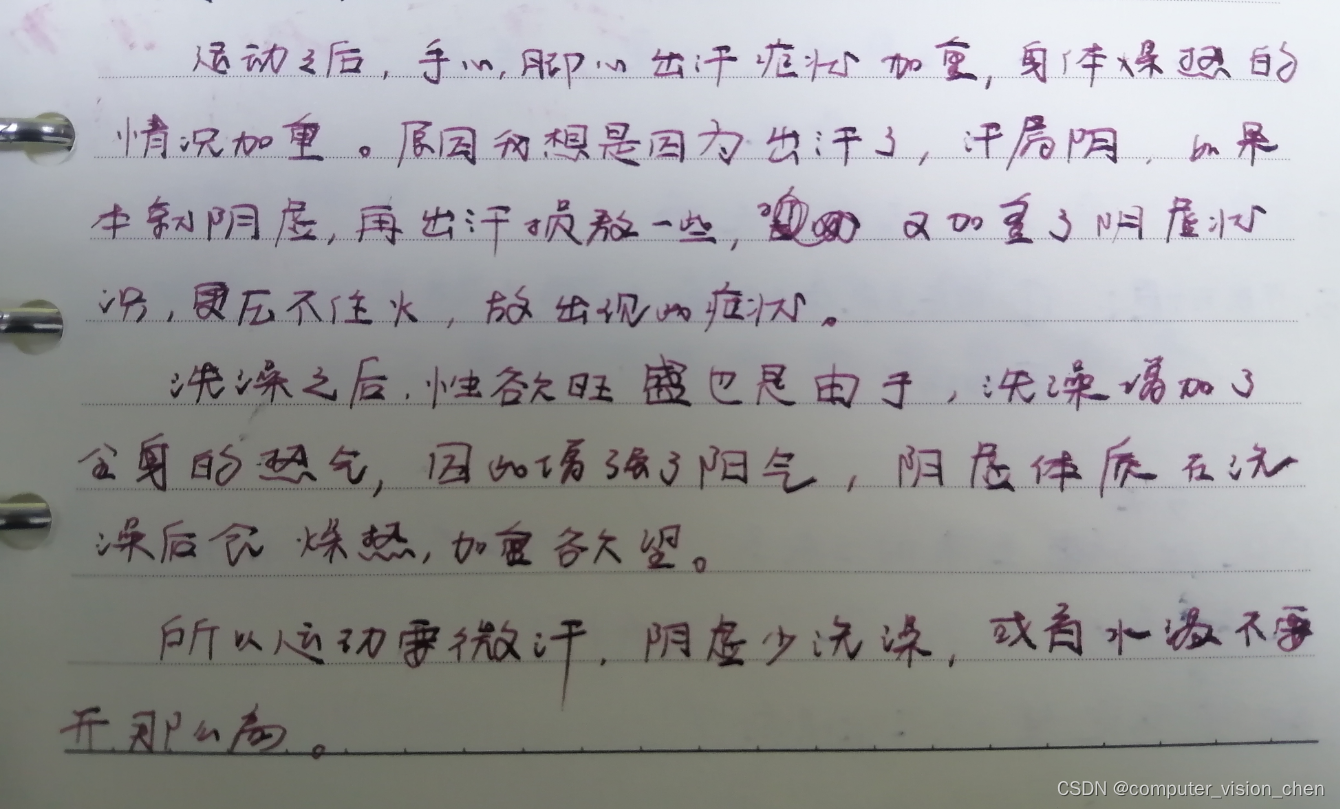 运动之后,手心,脚心出汗症状加重,身体燥热的
情况加重。原因我想是因为出汗了,汗属阴,如果
本就阴虚,再出汗损散一些,又加重了阴虚状
况,更压不住火,故出现此症状。
洗澡之后,性欲旺盛也是由于,洗澡增加了
全身的热气,因此增强了阳气,阴虚体质在洗
澡后会燥热,加重欲望。
所以运动要微汗,阴虚少洗澡,或者水温不要
开那么高。
CSDN @computer_vision_chen